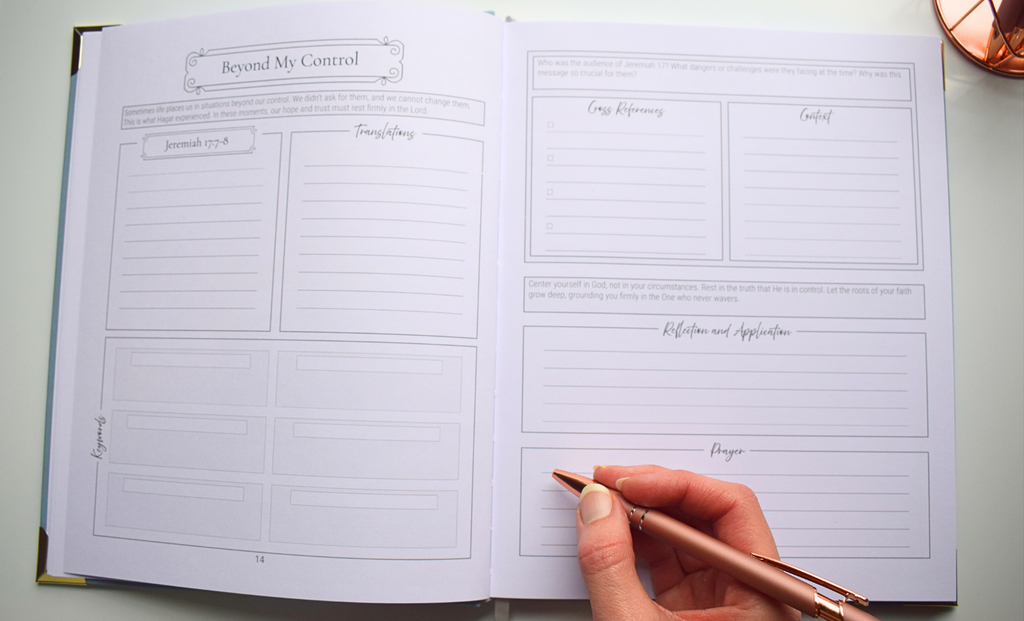 Beyond My Control
Sometimes life places us in situations beyond our control. We didn't ask for them, and we cannot change them.
This is what Hagar experienced. In these moments, our hope and trust must rest firmly in the Lord.
Jeremiah 17:7-8
Translations
Keywords
14
Who was the audience of Jeremiah 17? What dangers or challenges were they facing at the time? Why was this
message so crucial for them?
Cross References
Context
Center yourself in God, not in your circumstances. Rest in the truth that He is in control. Let the roots of your faith
grow deep, grounding you firmly in the One who never wavers.
Reflection and Application
Prayer